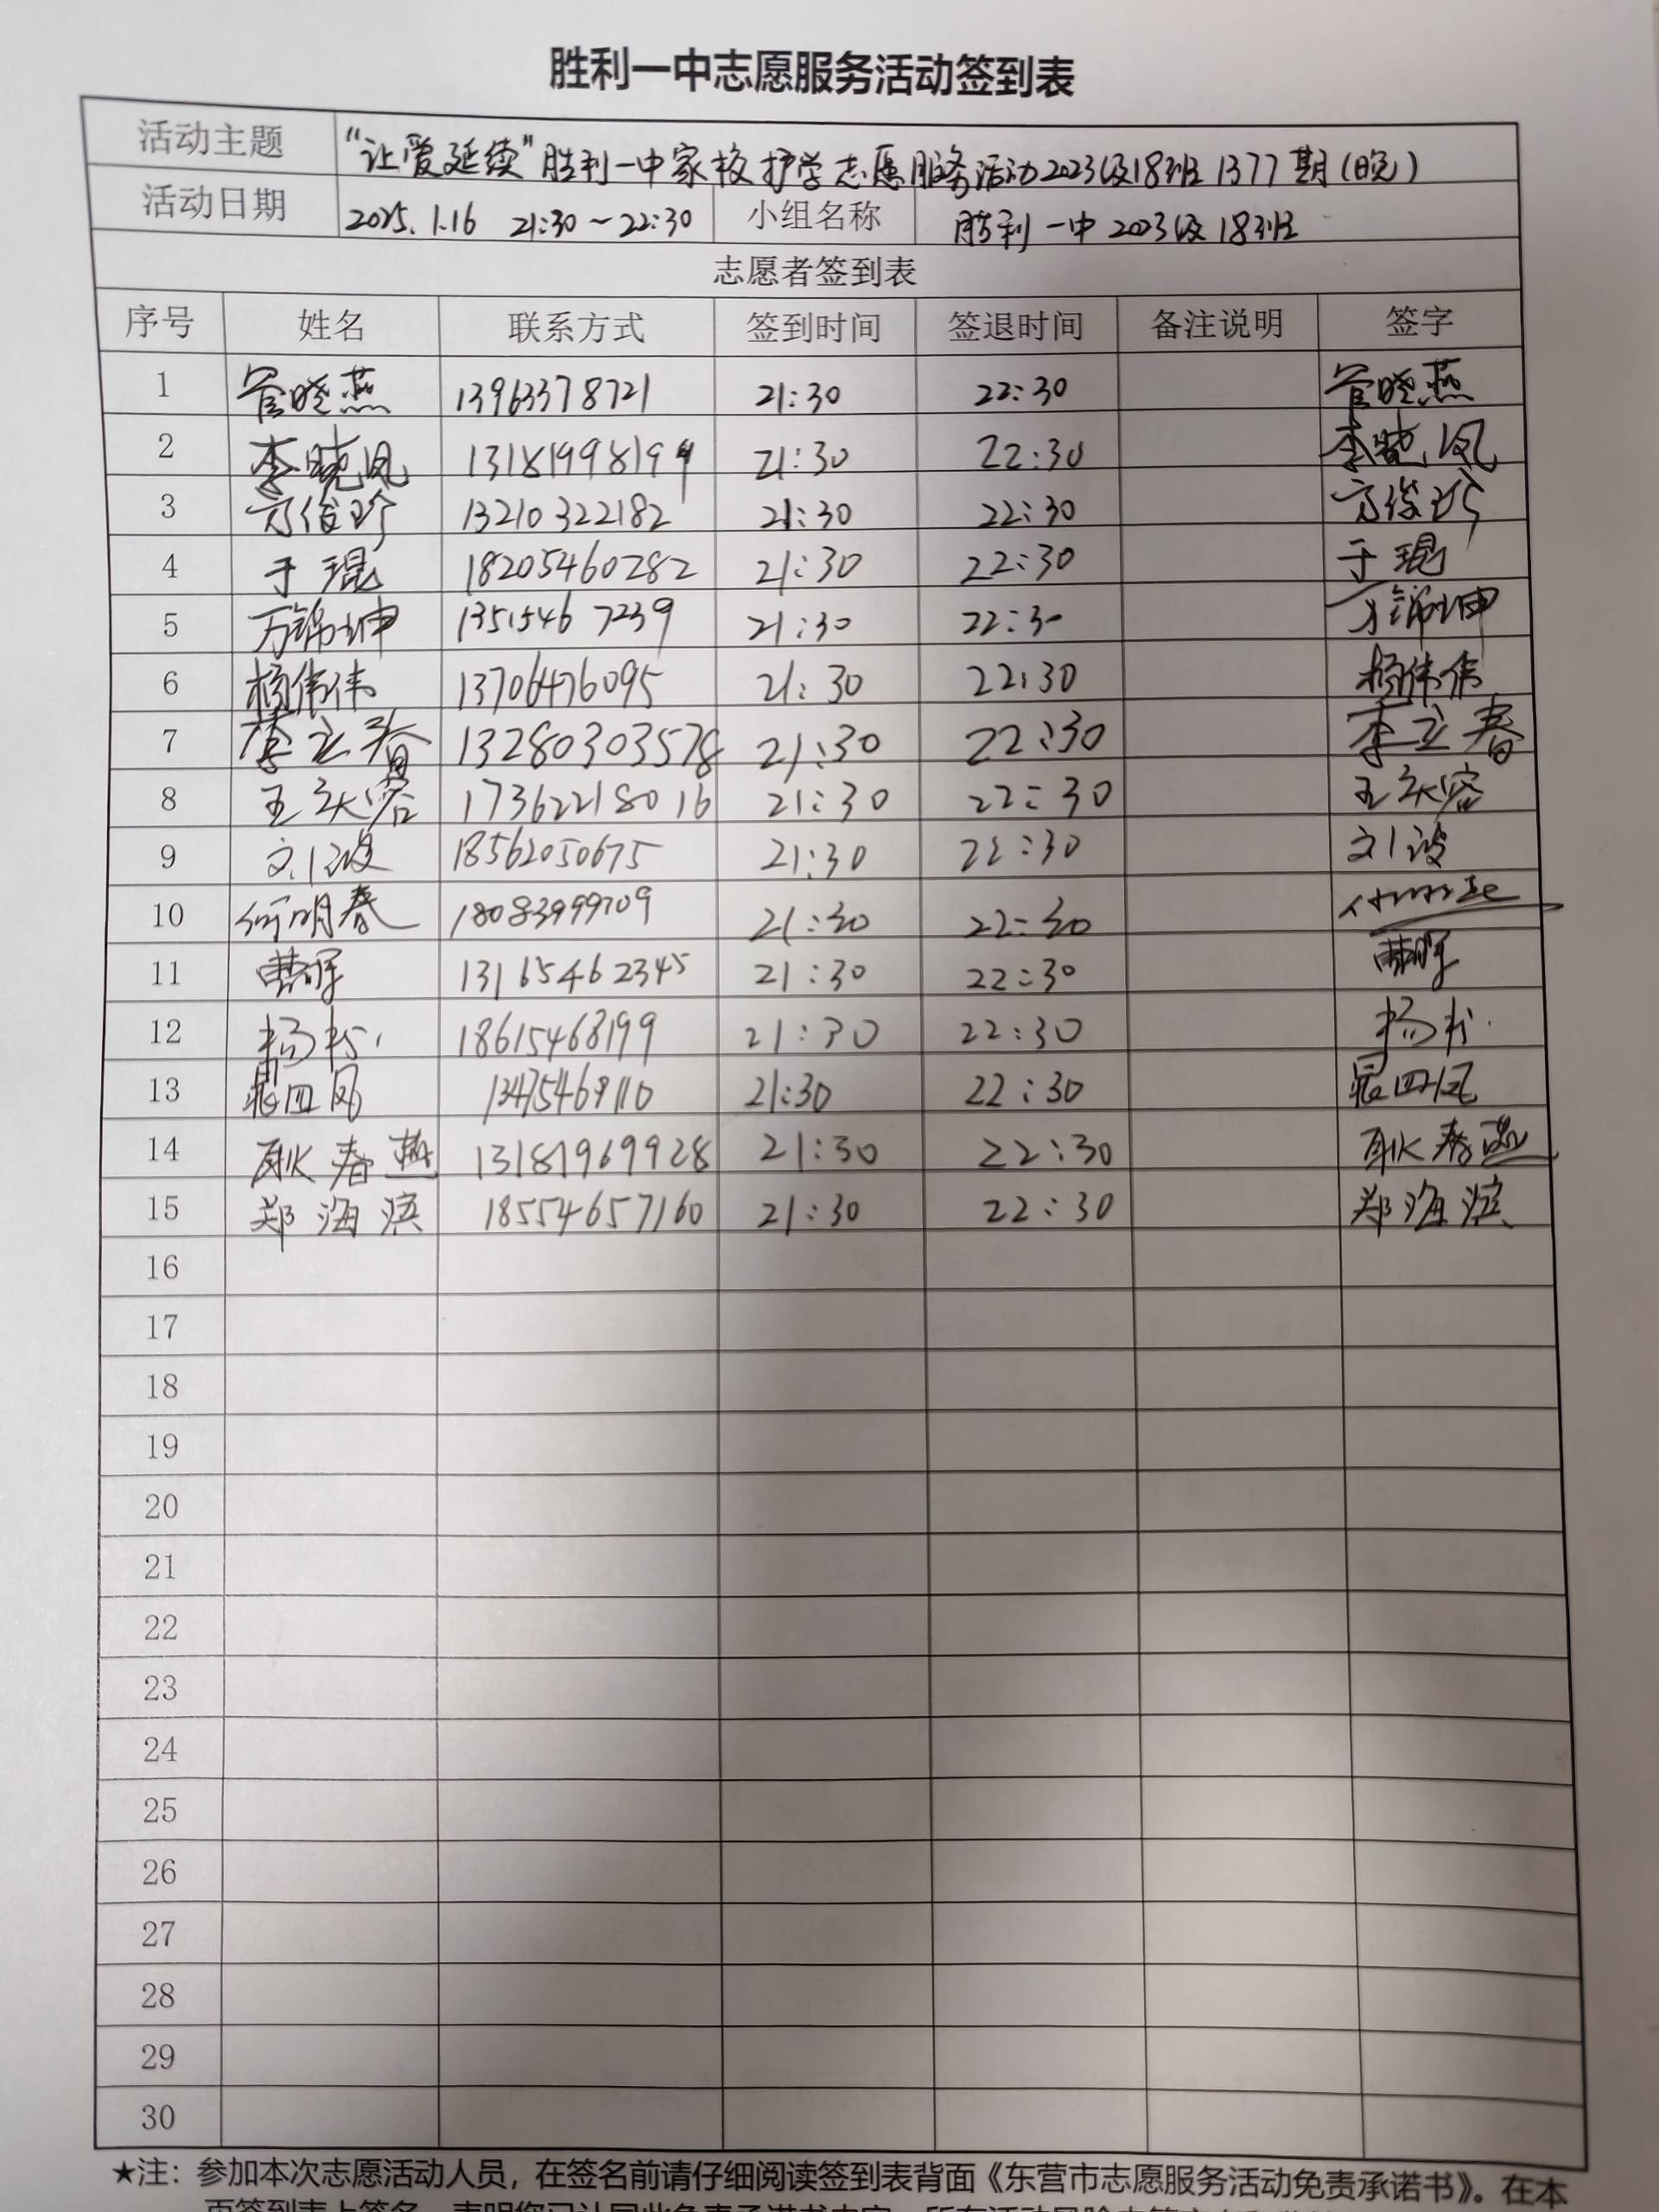 胜利一中志愿服务活动签到表
活动主题 “让爱延续”胜利一中家校护学志愿服务活动2023级18班1377期(晚)
活动日期 2025.1.16 21:30~22:30 小组名称 胜利一中2023级18班
志愿者签到表
序号 姓名 联系方式 签到时间 签退时间 备注说明 签字
1 管晓燕 13963378721 21:30 22:30 管晓燕
2 李晓凤 13181998199 21:30 22:30 李晓凤
3 方俊珍 13210322182 21:30 22:30 方俊珍
4 于琨 18205460282 21:30 22:30 于琨
5 万锦坤 13515467239 21:30 22:30 万锦坤
6 杨伟伟 13706476095 21:30 22:30 杨伟伟
7 李立春 13280303578 21:30 22:30 李立春
8 17362218016 21:30 22:30
9 刘波 18562050675 21:30 22:30 刘波
10 何明春 18083999709 21:30 22:30
11 曹晖 13165462345 21:30 22:30 曹晖
12 18615468199 21:30 22:30
13 13475469110 21:30 22:30
14 耿春燕 13181969928 21:30 22:30 耿春燕
15 郑海滨 18554657160 21:30 22:30 郑海滨
16
17
18
19
20
21
22
23
24
25
26
27
28
29
30
★注：参加本次志愿活动人员，在签名前请仔细阅读签到表背面《东营市志愿服务活动免责承诺书》。在本